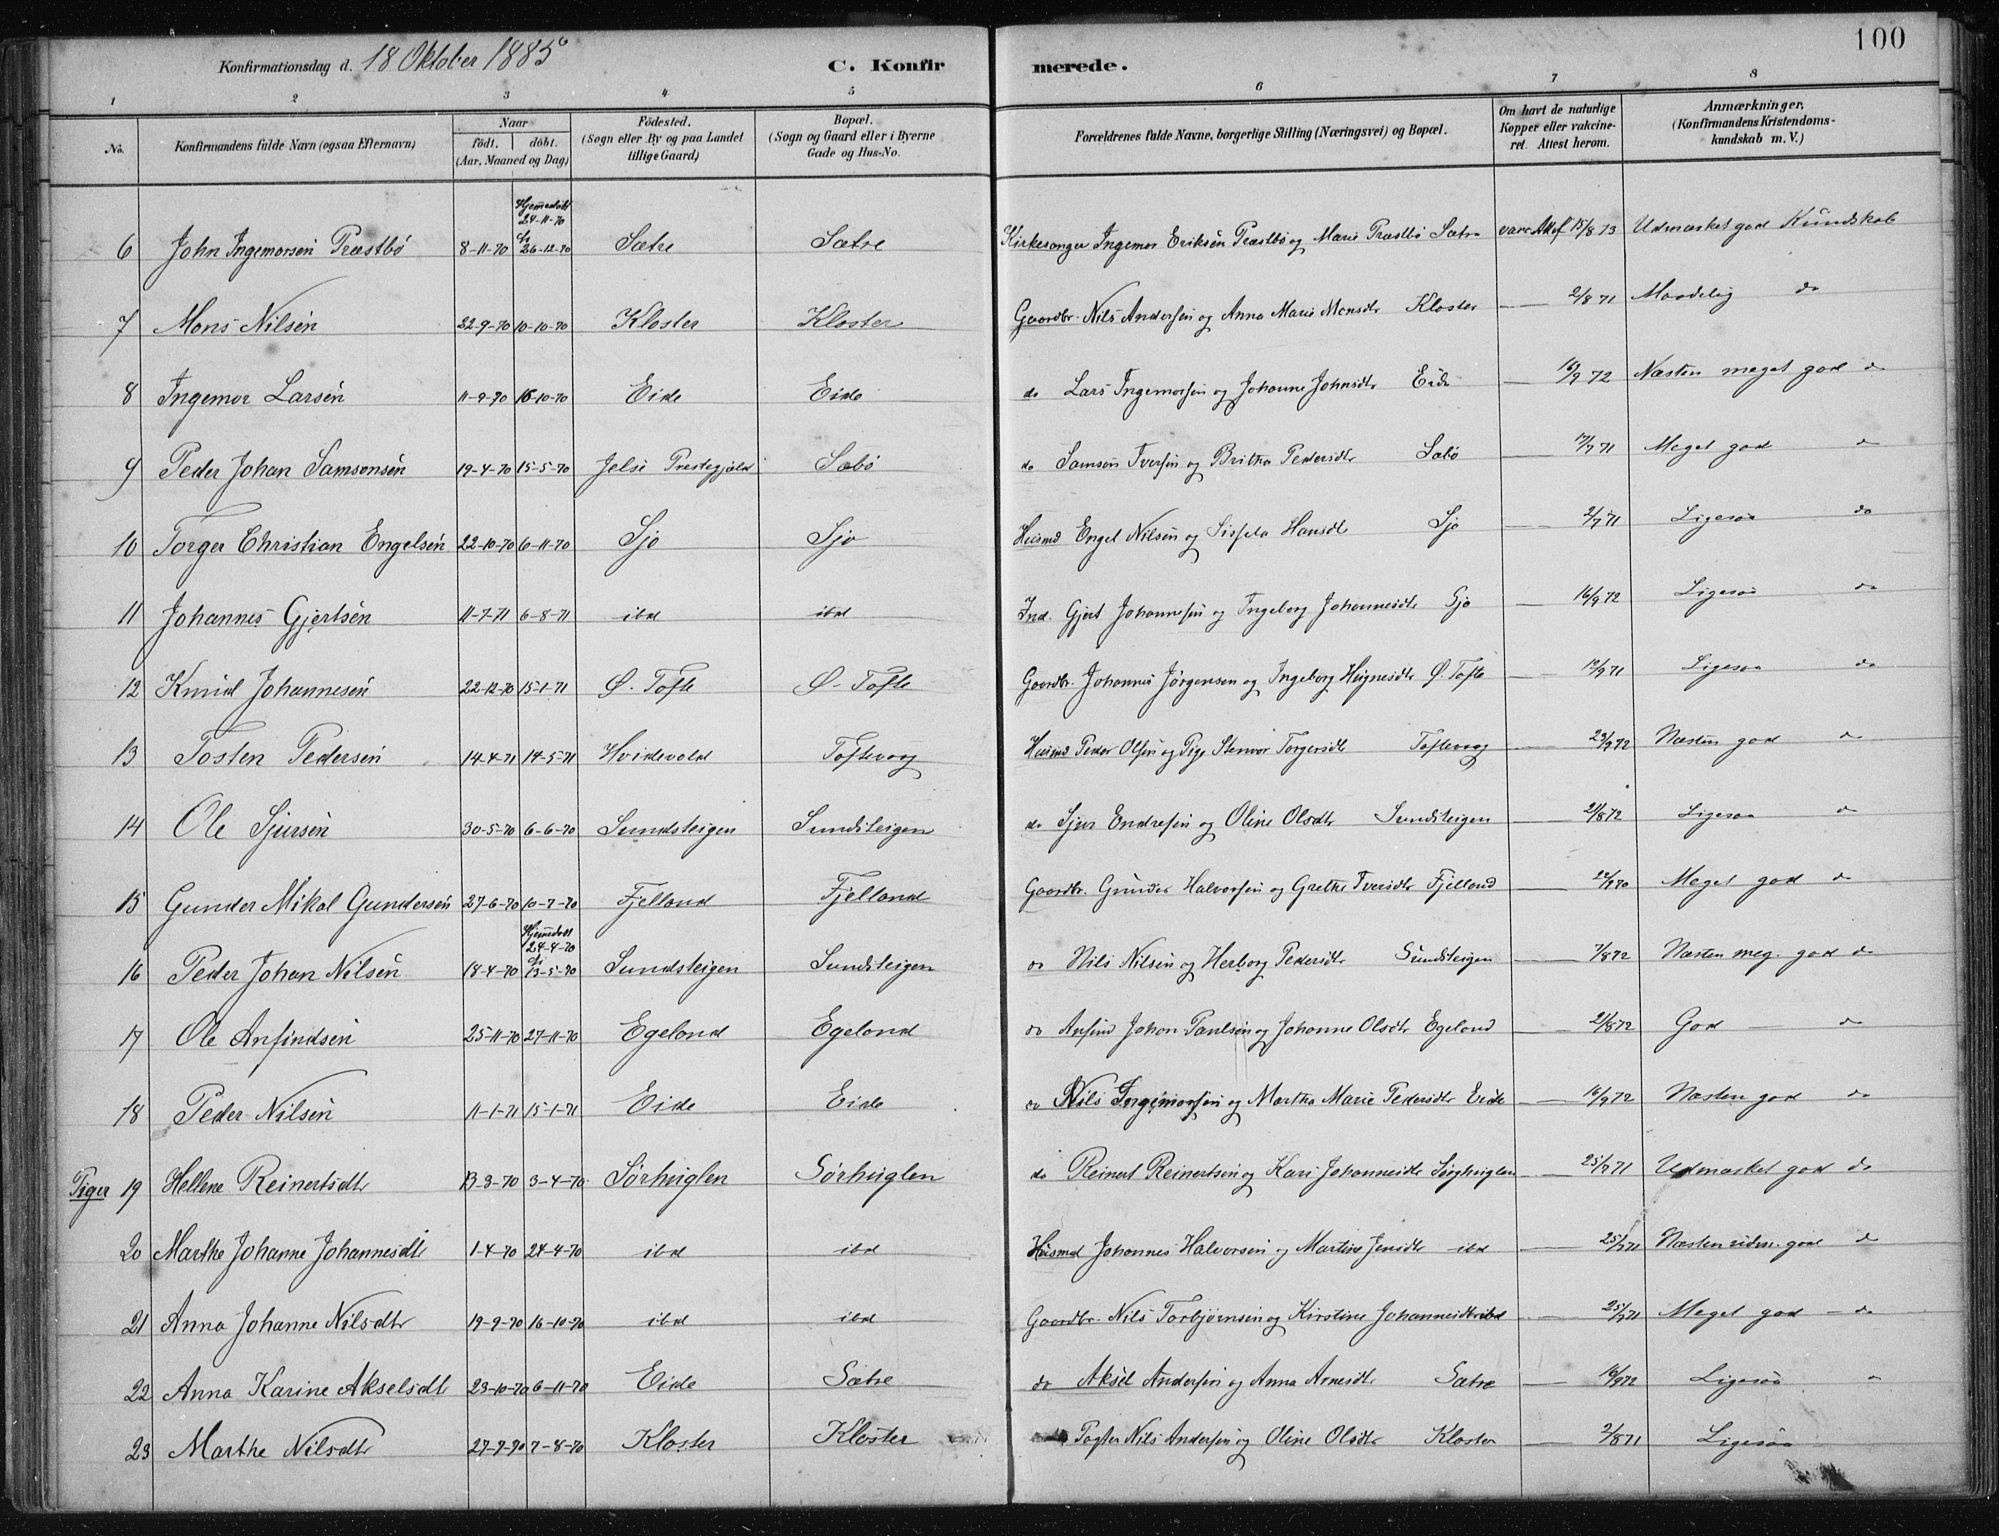 100
Konfirmationsdag d. 18 Oktober 1885 C. Konfir merede.
1 2 3 4 5 6 7 8
No. Konfirmandens fulde Navn (ogsaa Efternavn) Naar födt. döbt. (Aar, Maaned og Dag) Födested. (Sogn eller By og paa Landet tillige Gaard) Bopæl. (Sogn og Gaard eller i Byerne Gade og Hus-No. Forældrenes fulde Navne, borgerlige Stilling (Næringsvei) og Bopæl. Om havt de naturlige Kopper eller vakcineret. Attest herom. Anmærkninger, (Konfirmandens Kristendomskundskab m. V.)
Hjemedöbt
24-11-70
6 John Ingemorsen Præstbø 8-11-70 26-12-70 Sætre Sætre Kirkesanger Ingemor Eriksen Præstbø og Marie Præstbø Sætre 15/8 73 Udmærket god Kundskab
7 Mons Nilsen 22-9-70 10-10-70 Kloster Kloster Gaardbr. Nils Andersen og Anna Marie Monsdtr Kloster — 2/8 71 Maadelig do
8 Ingemor Larsen 11-9-70 16-10-70 Eide Eide do Lars Ingemorsen og Johanne Johnsdtr Eide — 16/9 72 Næsten meget god do
9 Peder Johan Samsonsen 19-4-70 15-5-70 Jelse Prestegjeld Sæbø do Samson Iversen og Britha Pedersdtr Sæbø — 17/9 71 Meget god do
10 Torger Christian Engelsen 22-10-70 6-11-70 Sjo Sjo Husmd Engel Nilsen og Sissela Hansdt Sjo — 2/9 71 Ligesaa do
11 Johannes Gjertsen 11-7-71 6-8-71 ibd ibd Ind. Gjert Johannesen og Ingeborg Johannesdtr Sjo — 16/9 72 Ligesaa do
12 Knud Johannesen 22-12-70 15-1-71 Ø. Tofte Ø. Tofte Gaardbr. Johannes Jørgensen og Ingeborg Høgnesdtr Ø. Tofte — 19/9 71 Ligesaa do
13 Tosten Pedersen 14-4-71 14-5-71 Hvidevold Toftevag Husmd Peder Olsen og Pige Stenvor Torgersdt Toftevag — 23/9 72 Næsten god do
14 Ole Sjursen 30-5-70 6-6-70 Sundsteigen Sundsteigen do Sjur Endresen og Oline Olsdtr Sundsteigen — 21/8 72 Ligesaa do
15 Gunder Mikal Gundersen 27-6-70 10-7-70 Fjelland Fjelland Gaardbr. Gunder Halvorsen og Grethe Iversdtr Fjelland — 22/9 70 Meget god do
Hjemedöbt
24-4-70
16 Peder Johan Nilsen 18-4-70 13-5-70 Sundsteigen Sundsteigen do Nils Nilsen og Herborg Pedersdtr Sundsteigen — 7/8 72 Næsten meg. god do
17 Ole Anfindsen 25-11-70 27-11-70 Egeland Egeland do Anfind Johan Paulsen og Johanne Olsdtr Egeland — 21/8 72 God do
18 Peder Nilsen 11-1-71 15-1-71 Eide Eide do Nils Ingemorsen og Martha Marie Pedersdtr Eide — 16/9 72 Næsten god do
Piger 19 Hellene Reinertsdtr 13-3-70 3-4-70 Sørhuglen Sørhuglen do Reinert Reinertsen og Kari Johannesdtr Sørhuglen — 25/9 71 Udmærket god do
20 Marthe Johanne Johannesdt 1-4-70 24-4-70 ibd ibd Husmd Johannes Halvorsen og Martine Jensdtr ibd — 25/9 71 Næsten udm. god do
21 Anna Johanne Nilsdtr 19-9-70 16-10-70 ibd ibd Gaardbr. Nils Torbjørnsen og Kirstine Johannesdtr ibd — 25/9 71 Meget god do
22 Anna Karine Akselsdt 23-10-70 6-11-70 Eide Sætre do Aksel Andersen og Anna Arnesdtr Sætre — 16/9 72 Ligesaa
23 Marthe Nilsdtr 27-7-70 7-8-70 Kloster Kloster Nils Andersen og Oline Olsdtr Kloster — 2/8 71 Ligesaa